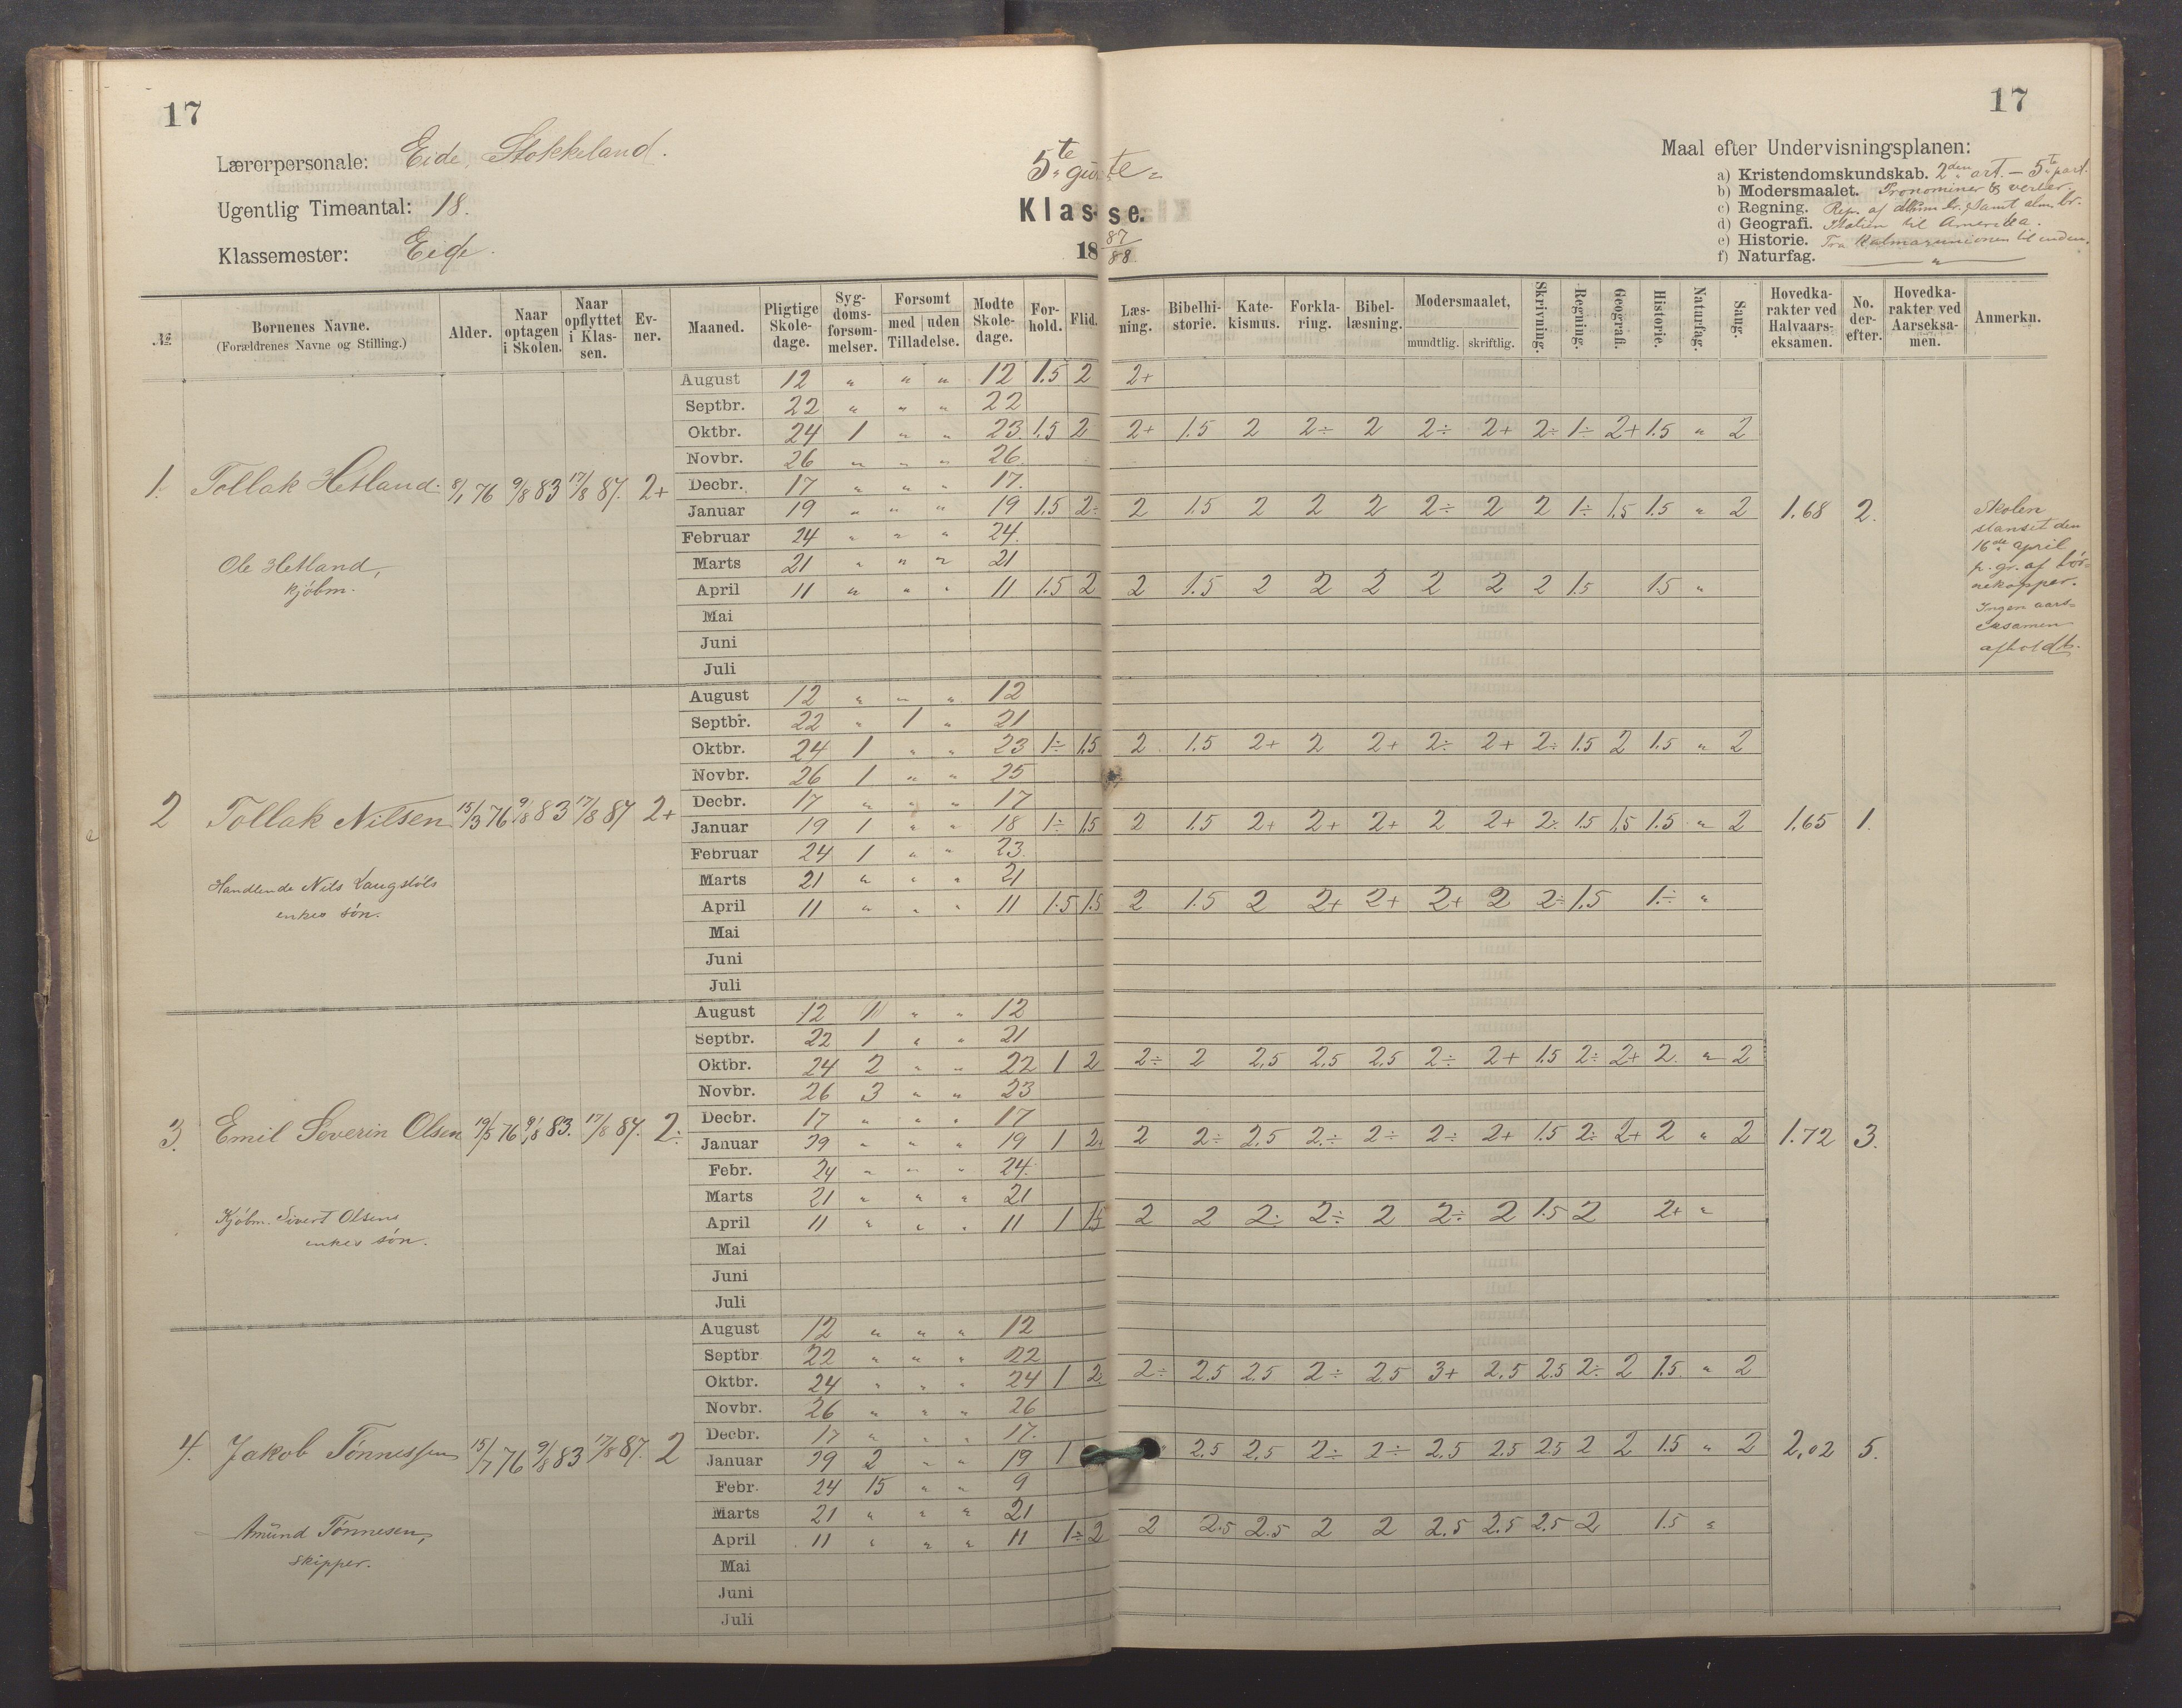 17
17
Lærerpersonale: Eide, Stokkeland.
Ugentlig Timeantal: 18.
Klassemester: Eide.
5te gutte-
Klasse.
18 87/88
Maal efter Undervisningsplanen:
a) Kristendomskundskab. 2den art. – 5te part.
b) Modersmaalet. Pronominer & verber.
c) Regning. Rep. af samt alm. br.
d) Geografi. Italien til Amerika.
e) Historie. Fra Kalmarunionen til enden.
f) Naturfag. — " —
№ Børnenes Navne. (Forældrenes Navne og Stilling.) Alder. Naar optagen i Skolen. Naar opflyttet i Klassen. Evner. Maaned. Pligtige Skoledage. Sygdomsforsømmelser. Forsømt med | uden Tilladelse. Mødte Skoledage. Forhold. Flid. Læsning. Bibelhistorie. Katekismus. Forklaring. Bibellæsning. Modersmaalet, mundtlig. skriftlig. Skrivning. Regning. Geografi. Historie. Naturfag. Sang. Hovedkarakter ved Halvaarseksamen. No. derefter. Hovedkarakter ved Aarseksamen. Anmerkn.
1. Tollak Hetland. 8/1 76 9/8 83 17/8 87. 2+
Ole Hetland,
kjøbm.
August 12 " " " 12 1.5 2 2+
Septbr. 22 " " " 22
Oktbr. 24 1 " " 23. 1.5 2 2+ 1.5 2 2÷ 2 2÷ 2+ 2÷ 1÷ 2+ 1.5 " 2
Novbr. 26 " " " 26.
Decbr. 17 " " " 17.
Januar 19 " " " 19 1.5 2÷ 2 1.5 2 2 2 2÷ 2 2 1÷ 1.5 1.5 " 2 1.68 2.
Februar 24 " " " 24.
Marts 21 " " " 21
April 11 " " " 11 1.5 2 2 1.5 2 2 2 2 2 2 1.5 1.5 "
Mai
Juni
Juli
Skolen
stanset den
16de april
p. gr. af bør-
nekopper.
Ingen aars-
eksamen
afholdt.
2 Tollak Nilsen 15/3 76 9/8 83 17/8 87 2+
Handlende Nils Laugstøls
enkes søn.
August 12 " " " 12
Septbr. 22 " 1 " 21
Oktbr. 24 1 " " 23 1÷ 1.5 2 1.5 2+ 2 2+ 2÷ 2+ 2÷ 1.5 2 1.5 " 2
Novbr. 26 1 " " 25
Decbr. 17 " " " 17
Januar 19 1 " " 18 1÷ 1.5 2 1.5 2+ 2+ 2+ 2 2+ 2÷ 1.5 1.5 1.5 " 2 1.65 1.
Februar 24 1 " " 23.
Marts 21 " " " 21
April 11 " " " 11 1.5 1.5 2 1.5 2 2+ 2+ 2+ 2 2÷ 1.5 1÷ "
Mai
Juni
Juli
3. Emil Severin Olsen 19/5 76 9/8 83. 17/8 87. 2÷
Kjøbm. Sivert Olsens
enkes søn.
August 12 " " 12
Septbr. 22 1 " " 21
Oktbr. 24 2 " " 22 1 2 2÷ 2 2.5 2.5 2.5 2÷ 2+ 1.5 2÷ 2+ 2. " 2
Novbr. 26 3 " " 23
Decbr. 17 " " " 17
Januar 19 " " " 19 1 2+ 2 2÷ 2.5 2÷ 2÷ 2÷ 2+ 1.5 2÷ 2+ 2 " 2 1.72 3.
Febr. 24 " " " 24.
Marts 21 " " " 21
April 11 " " " 11 1 1.5 2 2 2÷ 2÷ 2 2÷ 2 1.5 2 2+ "
Mai
Juni
Juli
4. Jakob Tønnessen 15/7 76 9/8 83 17/8 87. 2
Amund Tønnesen,
skipper.
August 12 " " " 12
Septbr 22 " " " 22
Oktbr. 24 " " " 24 1 2. 2÷ 2.5 2.5 2÷ 2.5 3+ 2.5 2.5 2÷ 2 1.5 " 2
Novbr. 26 " " " 26
Decbr. 17 " " " 17.
Januar 19 2 " " 19 1 2.5 2.5 2÷ 2÷ 2.5 2.5 2.5 2 2 1.5 " 2 2.02 5.
Febr. 24 15 " " 9
Marts 21 " " " 21
April 11 " " " 11 1÷ 2 2 2.5 2.5 2 2 2.5 2.5 2.5 2 1.5 "
Mai
Juni
Juli